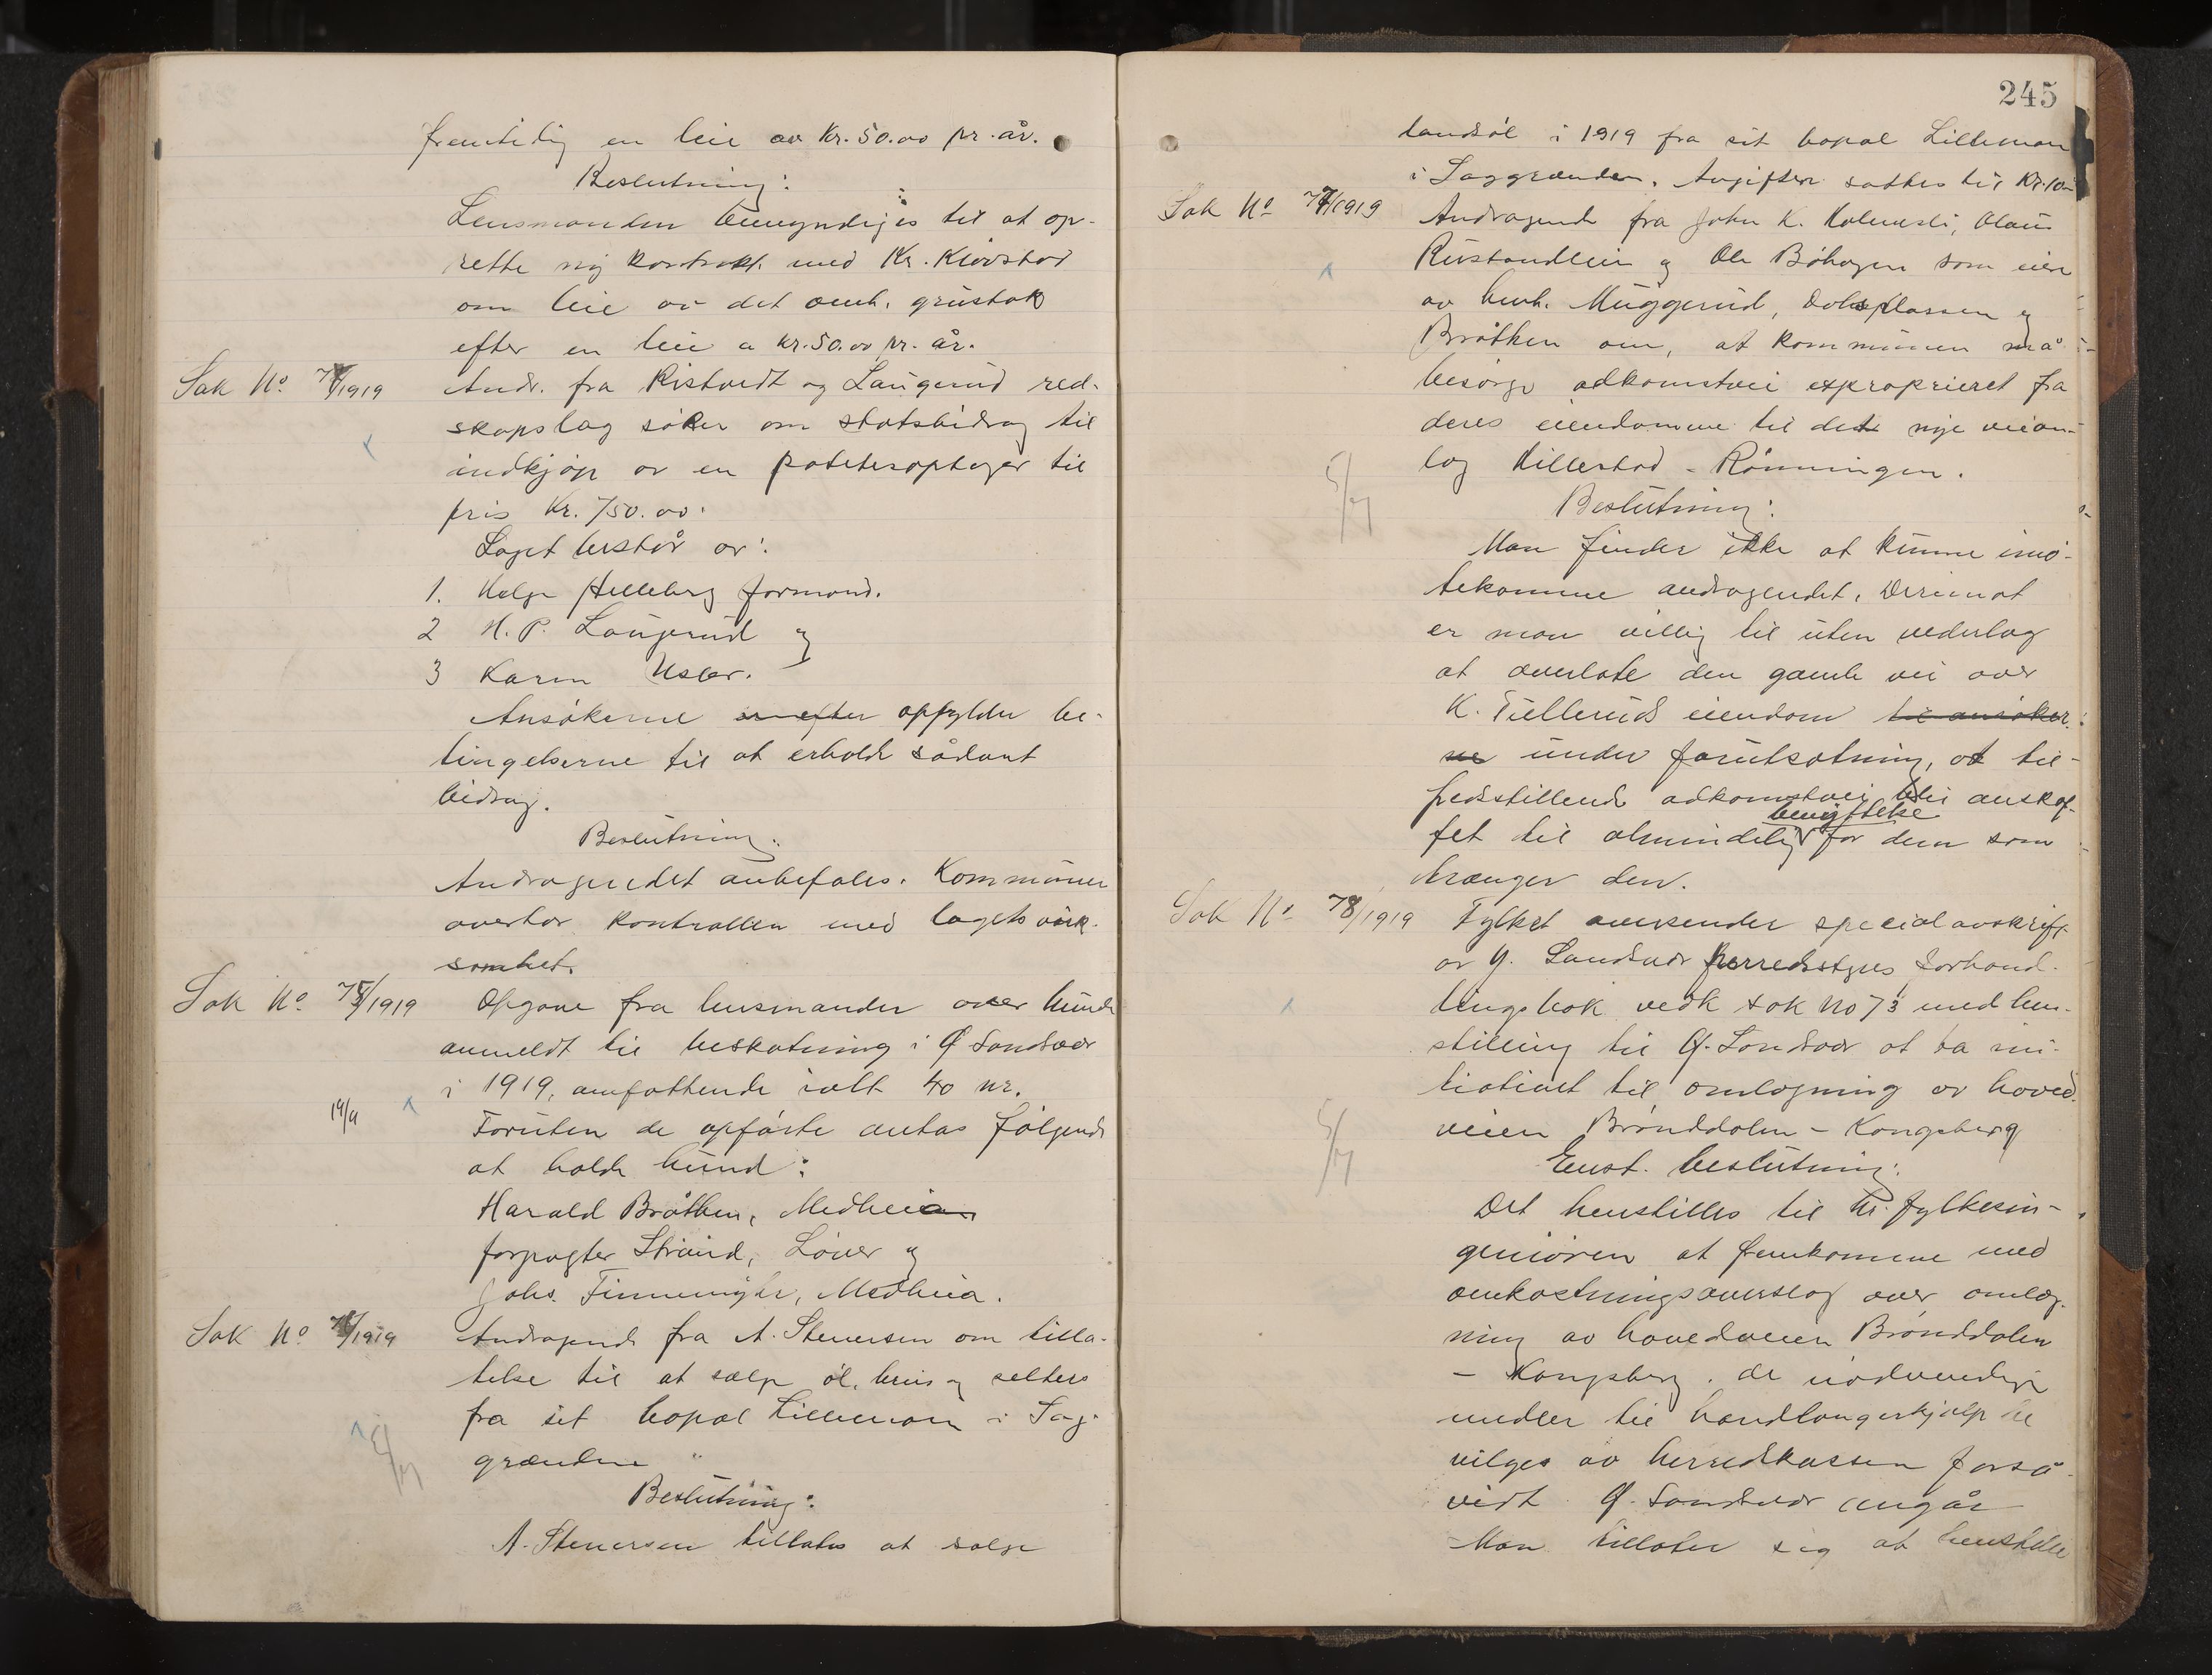 fremtidig en leie av Kr. 50.00 pr. år.
Beslutning:
Lensmanden bemyndiges til at op-
rette ny kontrakt med Kr. Klovstad
om leie av det omh. grustak
efter en leie a kr. 50.00 pr. år.
Sak No. 74/1919 Andr. fra Ristvedt og Laugerud red-
skapslag søker om statsbidrag til
indkjøp av en potetesoptager til
pris Kr. 750.00.
Laget består av:
1. Helge Helleberg formand.
2 H. P. Laugerud og
3 Karen
Ansøkerne opfylder be-
tingelserne til at erholde sådant
bidrag.
Beslutning:
Andragendet anbefales. Kommunen
overtar kontrollen med lagets virk-
somhet.
Sak No. 75/1919 Opgave fra lensmanden over hunde
anmeldt til beskatning i Y Sandsvær
i 1919, omfattende ialt 40 nr.
Foruten de opførte antas følgende
at holde hund:
Harald Bråthen, Medheia
forpagter Strand, Løver og
Johs. , Medheia.
Sak No 76/1919 Andragende fra A. Stenersen om tilla-
telse til at sælge øl, brus og selters
fra sit bopæl Lillemoen i Sag-
grænden
Beslutning:
A. Stenersen tillates at sælge
245
landsøl i 1919 fra sit bopæl Lillemoen
i Saggrænden. Avgiften sættes til Kr. 10
Sak No 77/1919 Andragende fra John K. Holmsli, Olaus
og Ole Bøhagen som eiere
av henh. Muggerud, Dolsplassen og
Bråthen om, at kommunen må
besørge adkomstvei exproprieret fra
deres eiendomme til det nye veian-
læg Hillestad - Rønningen.
Beslutning:
Man finder ikke at kunne imø-
tekomme andragendet. Derimot
er man villig til uten vederlag
at overlate den gamle vei over
K. Tulleruds eiendom til ansøker-
ne under forutsætning, at til-
fredsstillende adkomstvei blir anskaf-
benyttelse
fet til almindelig for dem som
trænger den.
Sak No 78/1919 Fylket oversender specialavskrift
av Y. Sandsvær herredsstyres forhand-
lingsbok vedk sak No 73 med hen-
stilling til Y. Sandsvær at ta ini-
tiativet til omlægning av hoved-
veien Brønddalen - Kongsberg
Enst. beslutning:
Det henstilles til hr. fylkesin-
geniøren at fremkomme med
omkostningsoverslag over omlæg-
ning av hovedveien Brønddalen
- Kongsberg. de nødvendige
midler til håndlangerhjælp be
vilges av herredskassen forså-
vidt Y. Sandsvær angår
Man tillater sig at henstille